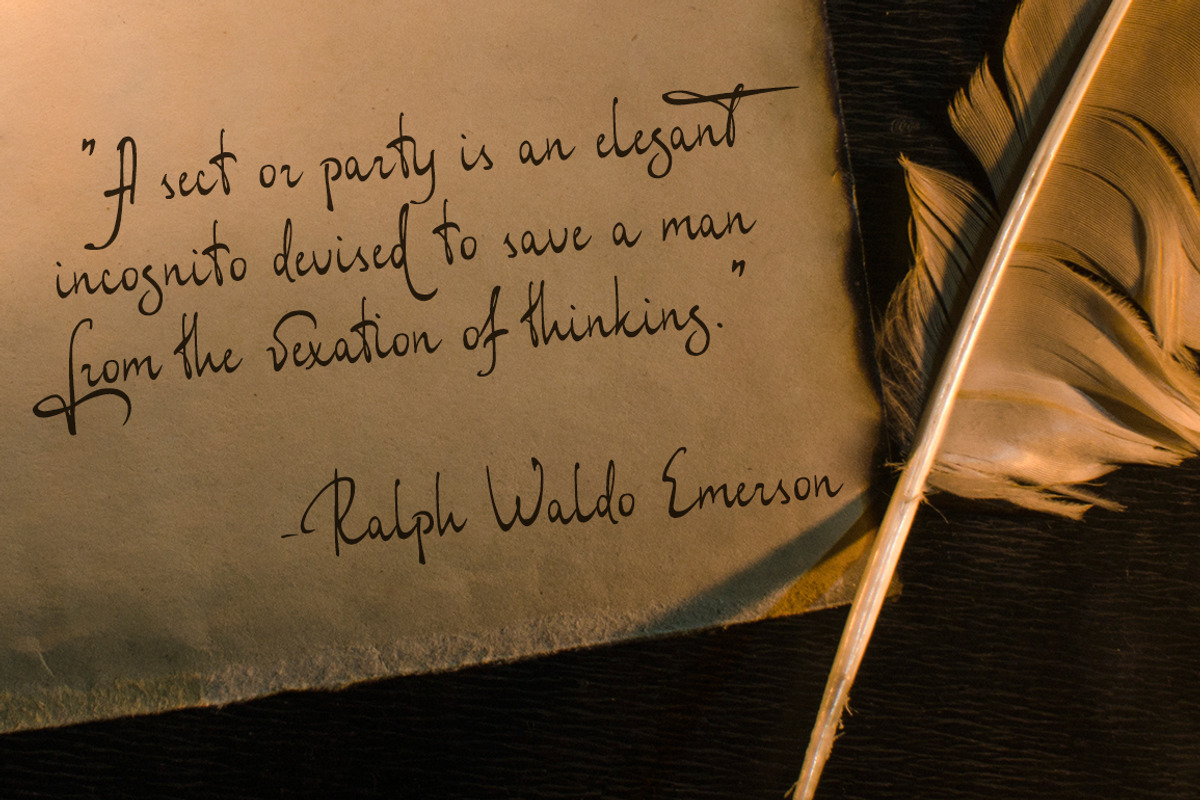 "A sect or party is an elegant
incognito devised to save a man
from the vexation of thinking."
-Ralph Waldo Emerson